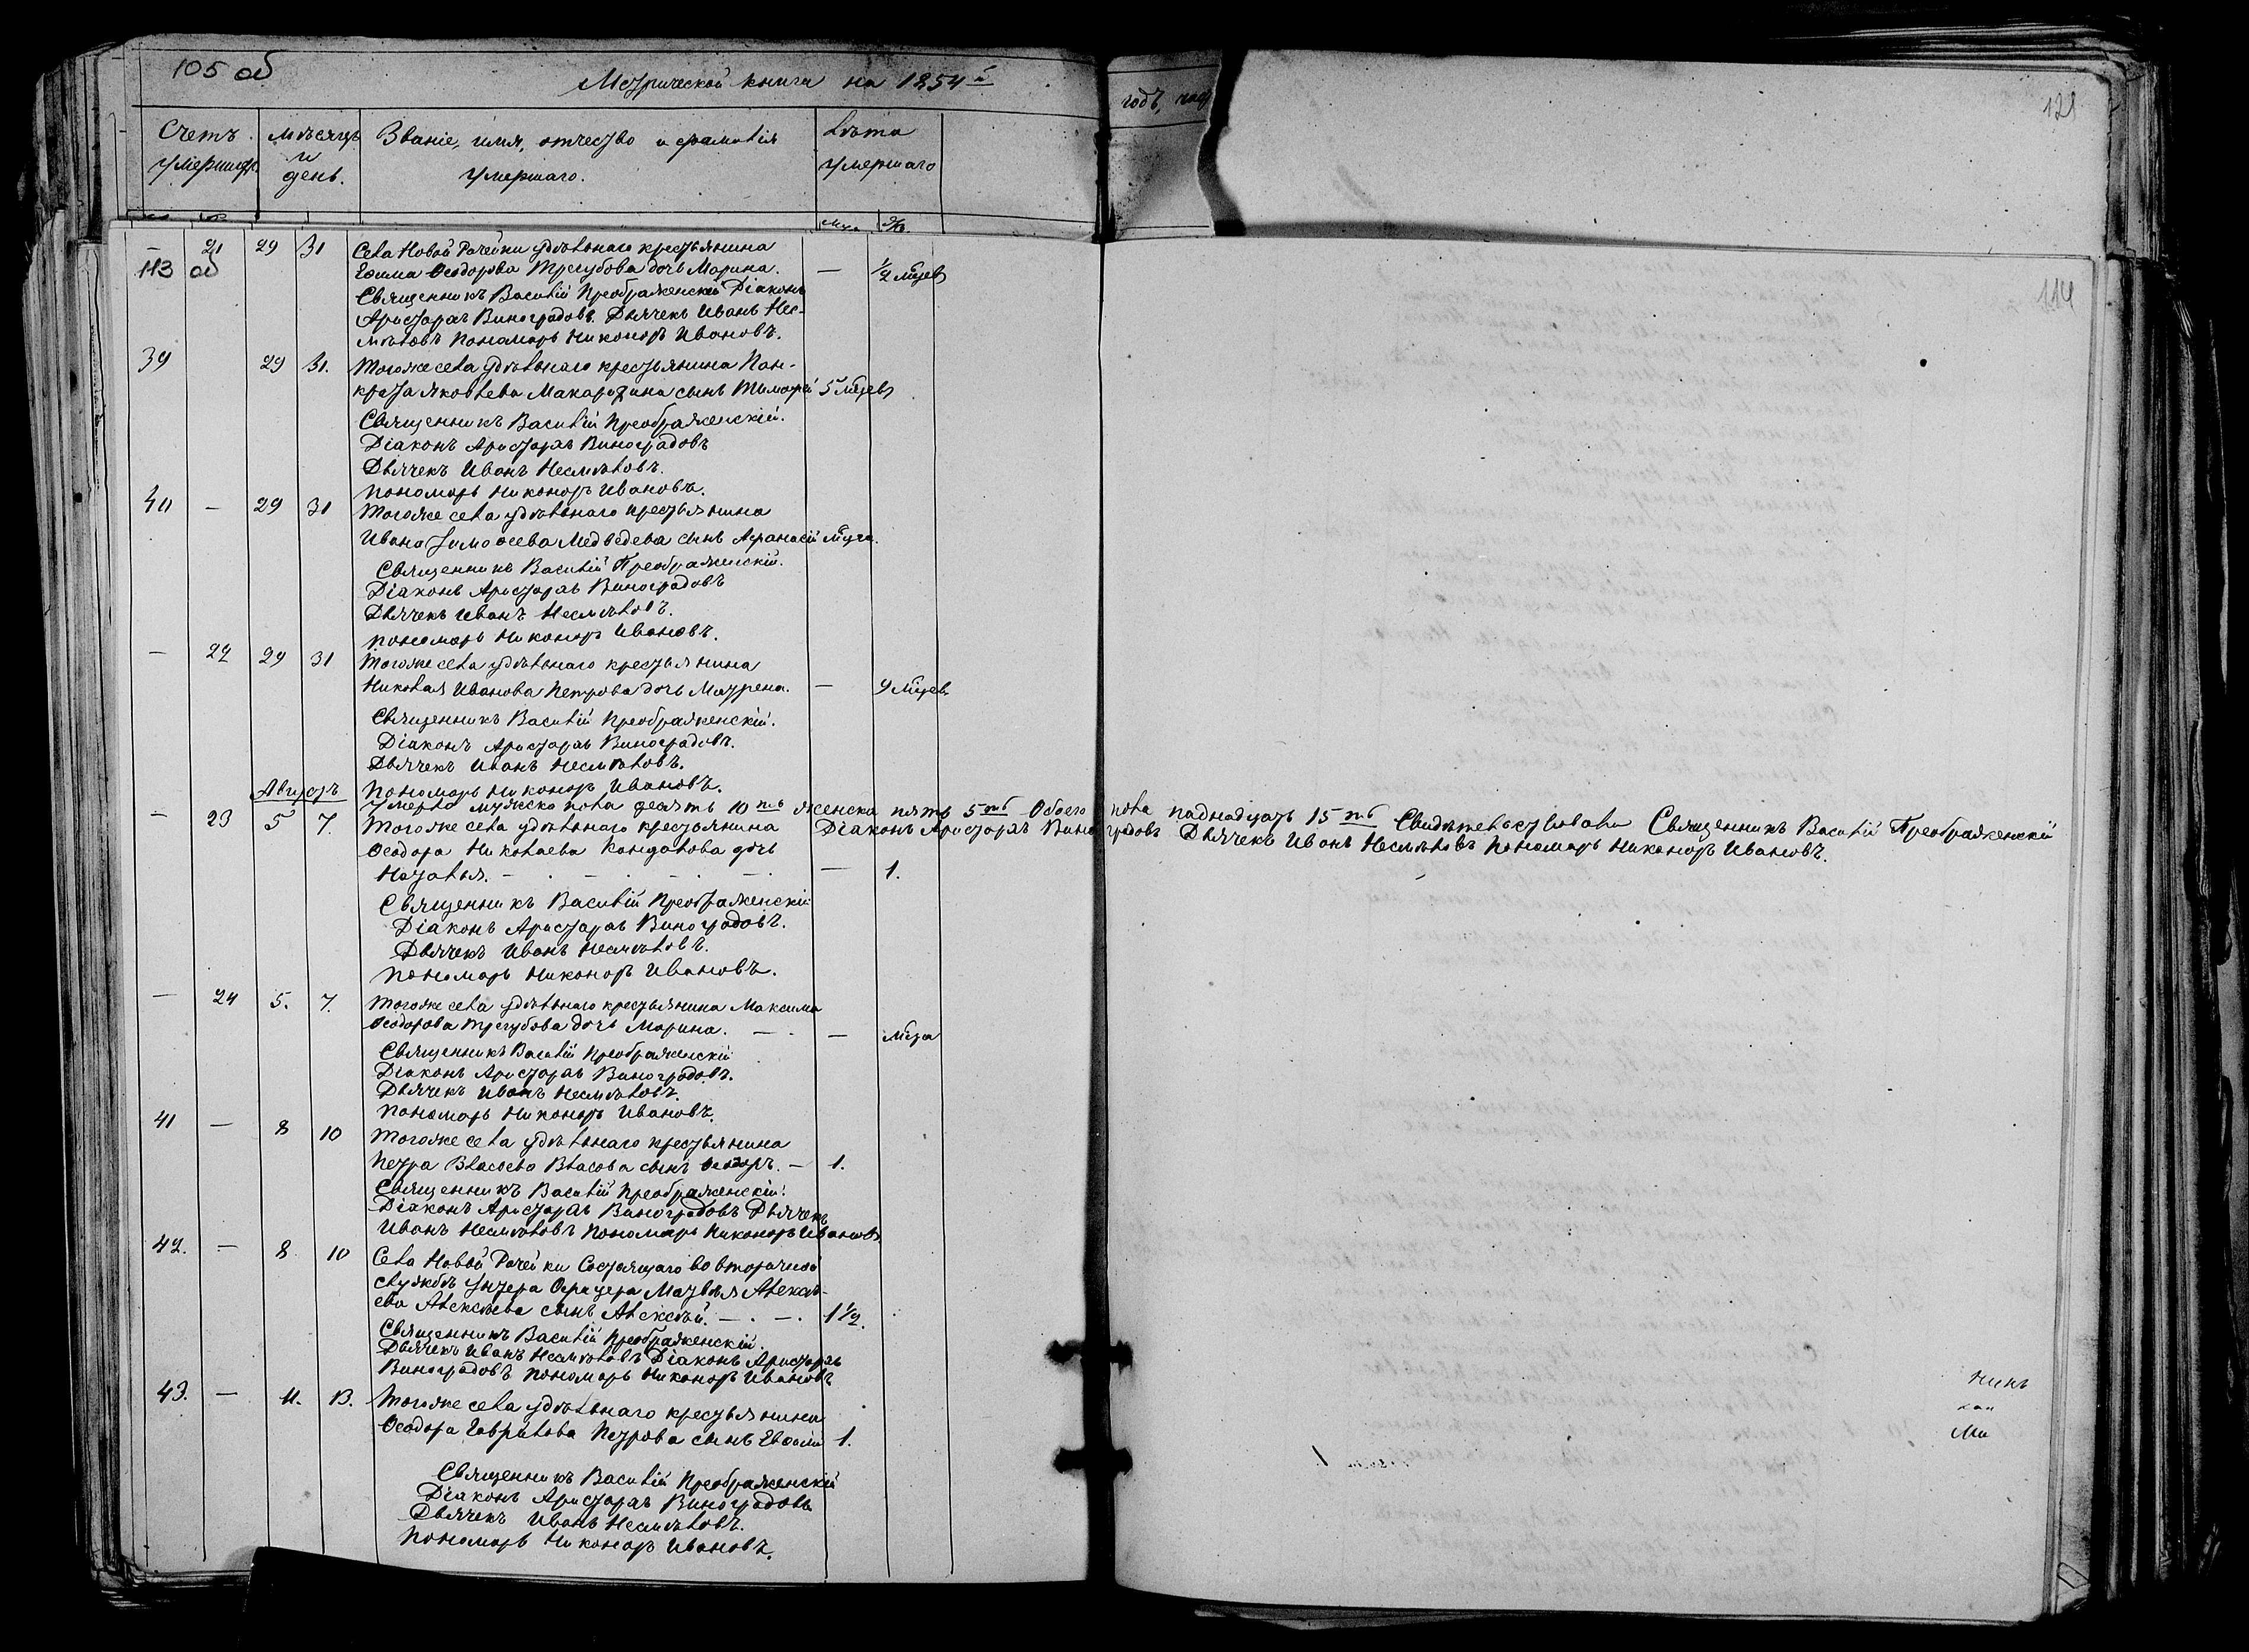 105 об
Метрической книги на 1854й
годъ, час
121
Счетъ умершихъ.
мѣсяцъ и день.
Званіе, имя, отчество и фамилія умершаго.
Лѣта умершаго
Му. Ж.
— 21 29 31 Села Новой Рачейки удѣльнаго крестьянина
113 об
114
Ефима Ѳеодорова Трегубова дочь Марина. — 1/2 мцев
Священникъ Василій Преображенскій Діаконъ
Аристархъ Виноградовъ. Дьячекъ Иванъ Нес-
мѣловъ Пономарь Никоноръ Ивановъ.
39 29 31. Тогоже села удѣльнаго крестьянина Пан-
крата Яковлева Макарихина сынъ Тимофей 5 мцев
Священникъ Василій Преображенскій.
Діаконъ Аристархъ Виноградовъ
Дьячекъ Иванъ Несмѣловъ.
Пономарь Никоноръ Ивановъ.
40 — 29 31 Тогоже села удѣльнаго крестьянина
Ивана Тимоѳеева Медведева сынъ Афанасій мцга.
Священникъ Василій Преображенскій.
Діаконъ Аристархъ Виноградовъ
Дьячекъ Иванъ Несмѣловъ.
Пономарь Никоноръ Ивановъ.
— 22 29 31 Тогоже села удѣльнаго крестьянина
Николая Иванова Петрова дочь Матрена. — 9 мцев
Священникъ Василій Преображенскій.
Діаконъ Аристархъ Виноградовъ.
Дьячекъ Иванъ Несмѣловъ.
Пономарь Никоноръ Ивановъ.
Августъ
Умерло мужеска пола десять 10ть женска пять 5ть Обоего пола падналцать 15ть Свидѣтельствовали Священникъ Василій Преображенскій
Діаконъ Аристархъ Виноградовъ Дьячекъ Иванъ Несмѣловъ Пономарь Никоноръ Ивановъ.
— 23 5 7. Тогоже села удѣльнаго крестьянина
Ѳеодора Николаева Кондалова дочь
Наталья. — . — . — . — 1.
Священникъ Василій Преображенскій
Діаконъ Аристархъ Виноградовъ.
Дьячекъ Иванъ Несмѣловъ.
Пономарь Никоноръ Ивановъ.
— 24 5. 7. Тогоже села удѣльнаго крестьянина Максима
Ѳеодорова Трегубова дочь Марина. — . — мца
Священникъ Василій Преображенскій
Діаконъ Аристархъ Виноградовъ.
Дьячекъ Иванъ Несмѣловъ.
Пономарь Никоноръ Ивановъ.
41 — 8 10 Тогоже села удѣльнаго крестьянина
Петра Власова Власова сынъ Ѳеодоръ. — 1.
Священникъ Василій Преображенскій.
Діаконъ Аристархъ Виноградовъ Дьячекъ
Иванъ Несмѣловъ Пономарь Никоноръ Ивановъ
42. — 8 10 Села Новой Рачейки Состоящаго во вторичной
службѣ Унтера Офицера Матвѣя Алексѣ-
ева Алексѣева сынъ Алексѣй. — . — . 1 1/2.
Священникъ Василій Преображенскій.
Дьячекъ Иванъ Несмѣловъ Діаконъ Аристархъ
Виноградовъ Пономарь Никоноръ Ивановъ
43. — 11. 13. Тогоже села удѣльнаго крестьянина
Ѳеодора Гаврилова Петрова сынъ Евфимій 1.
Священникъ Василій Преображенскій
Діаконъ Аристархъ Виноградовъ
Дьячекъ Иванъ Несмѣловъ.
Пономарь Никоноръ Ивановъ.
никъ
кан
Ми